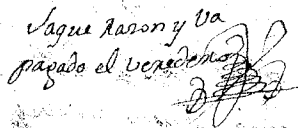 Saque Razon y va
pagado el veredero